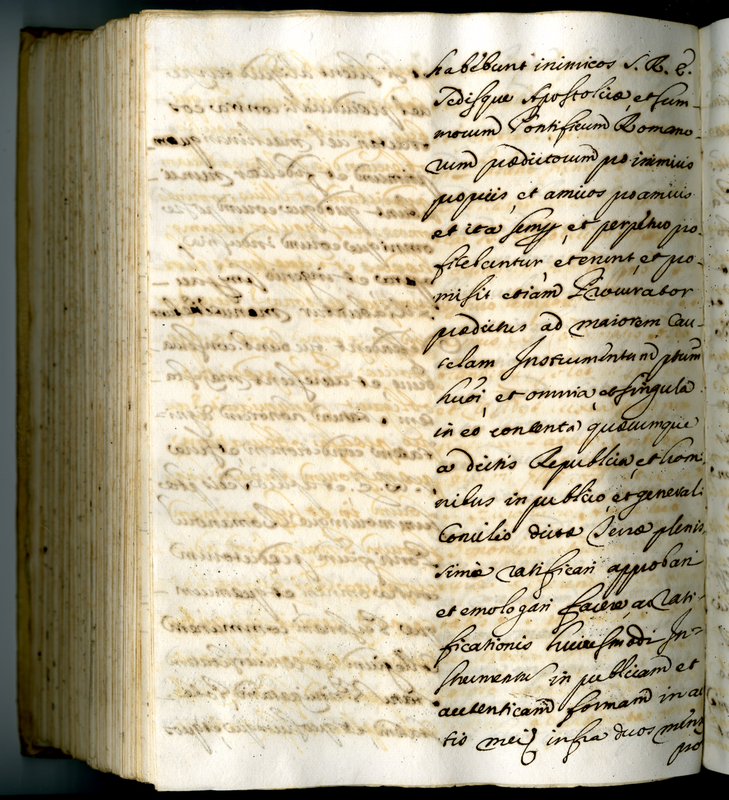 habebunt inimicos S. R. E.
Sedisque Apostolicæ, et sum-
morum Pontificum Romano-
rum prædictorum pro inimicis
propriis, et amicos pro amicis
et ita semp et perpetuo pro-
fitebuntur, et erunt, et pro-
misit etiam Procurator
prædictus ad maiorem Cau-
telam Instrumentum pñum
huõi, et omnia, et singula
in eo contenta quæcumque
a dictis Republica, et homi
nibus in publico, et generali
Concilio dictæ Terræ plenis
simè ratificari approbari
et emologari facere, ac rati-
ficationis huiusmodi In-
strumentũ in publicam et
autenticam formam in
tio mei infra duos mens
pro